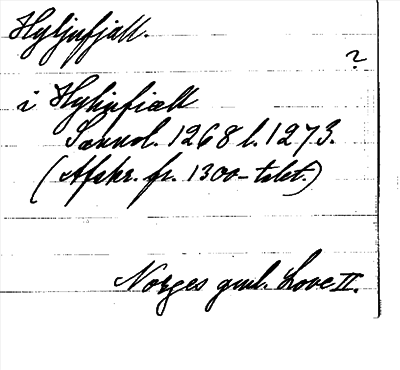 Hyljufjall.
?
i Hyljufiall
Sannol. 1268 l. 1273.
(Afskr. fr. 1300-talet.)
Norges gml. Love II.